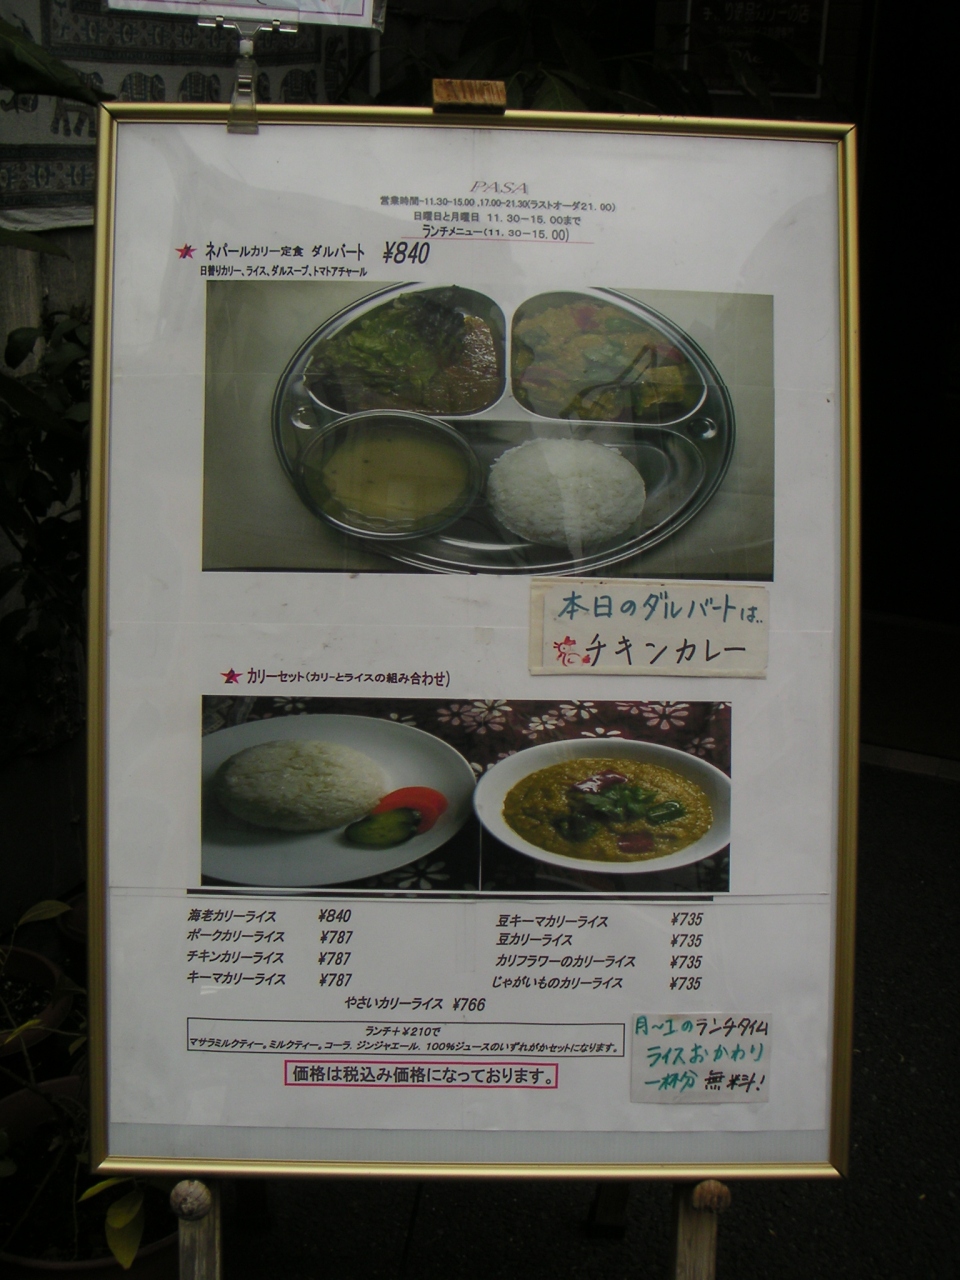 PASA
営業時間-11.30-15.00 ,17.00-21.30(ラストオーダ21.00)
日曜日と月曜日 11.30-15.00まで
ランチメニュー(11.30-15.00)
1 ネパールカリー定食 ダルバート ¥840
日替りカリー、ライス、ダルスープ、トマトアチャール
本日のダルバートは..
チキンカレー
2 カリーセット(カリーとライスの組み合わせ)
海老カリーライス ¥840
ポークカリーライス ¥787
チキンカリーライス ¥787
キーマカリーライス ¥787
豆キーマカリーライス ¥735
豆カリーライス ¥735
カリフラワーのカリーライス ¥735
じゃがいものカリーライス ¥735
やさいカリーライス ¥766
ランチ+¥210で
マサラミルクティー。ミルクティー。コーラ. ジンジャエール. 100%ジュースのいずれがかセットになります。
価格は税込み価格になっております。
月〜土のランチタイム
ライスおかわり
一杯分 無料!